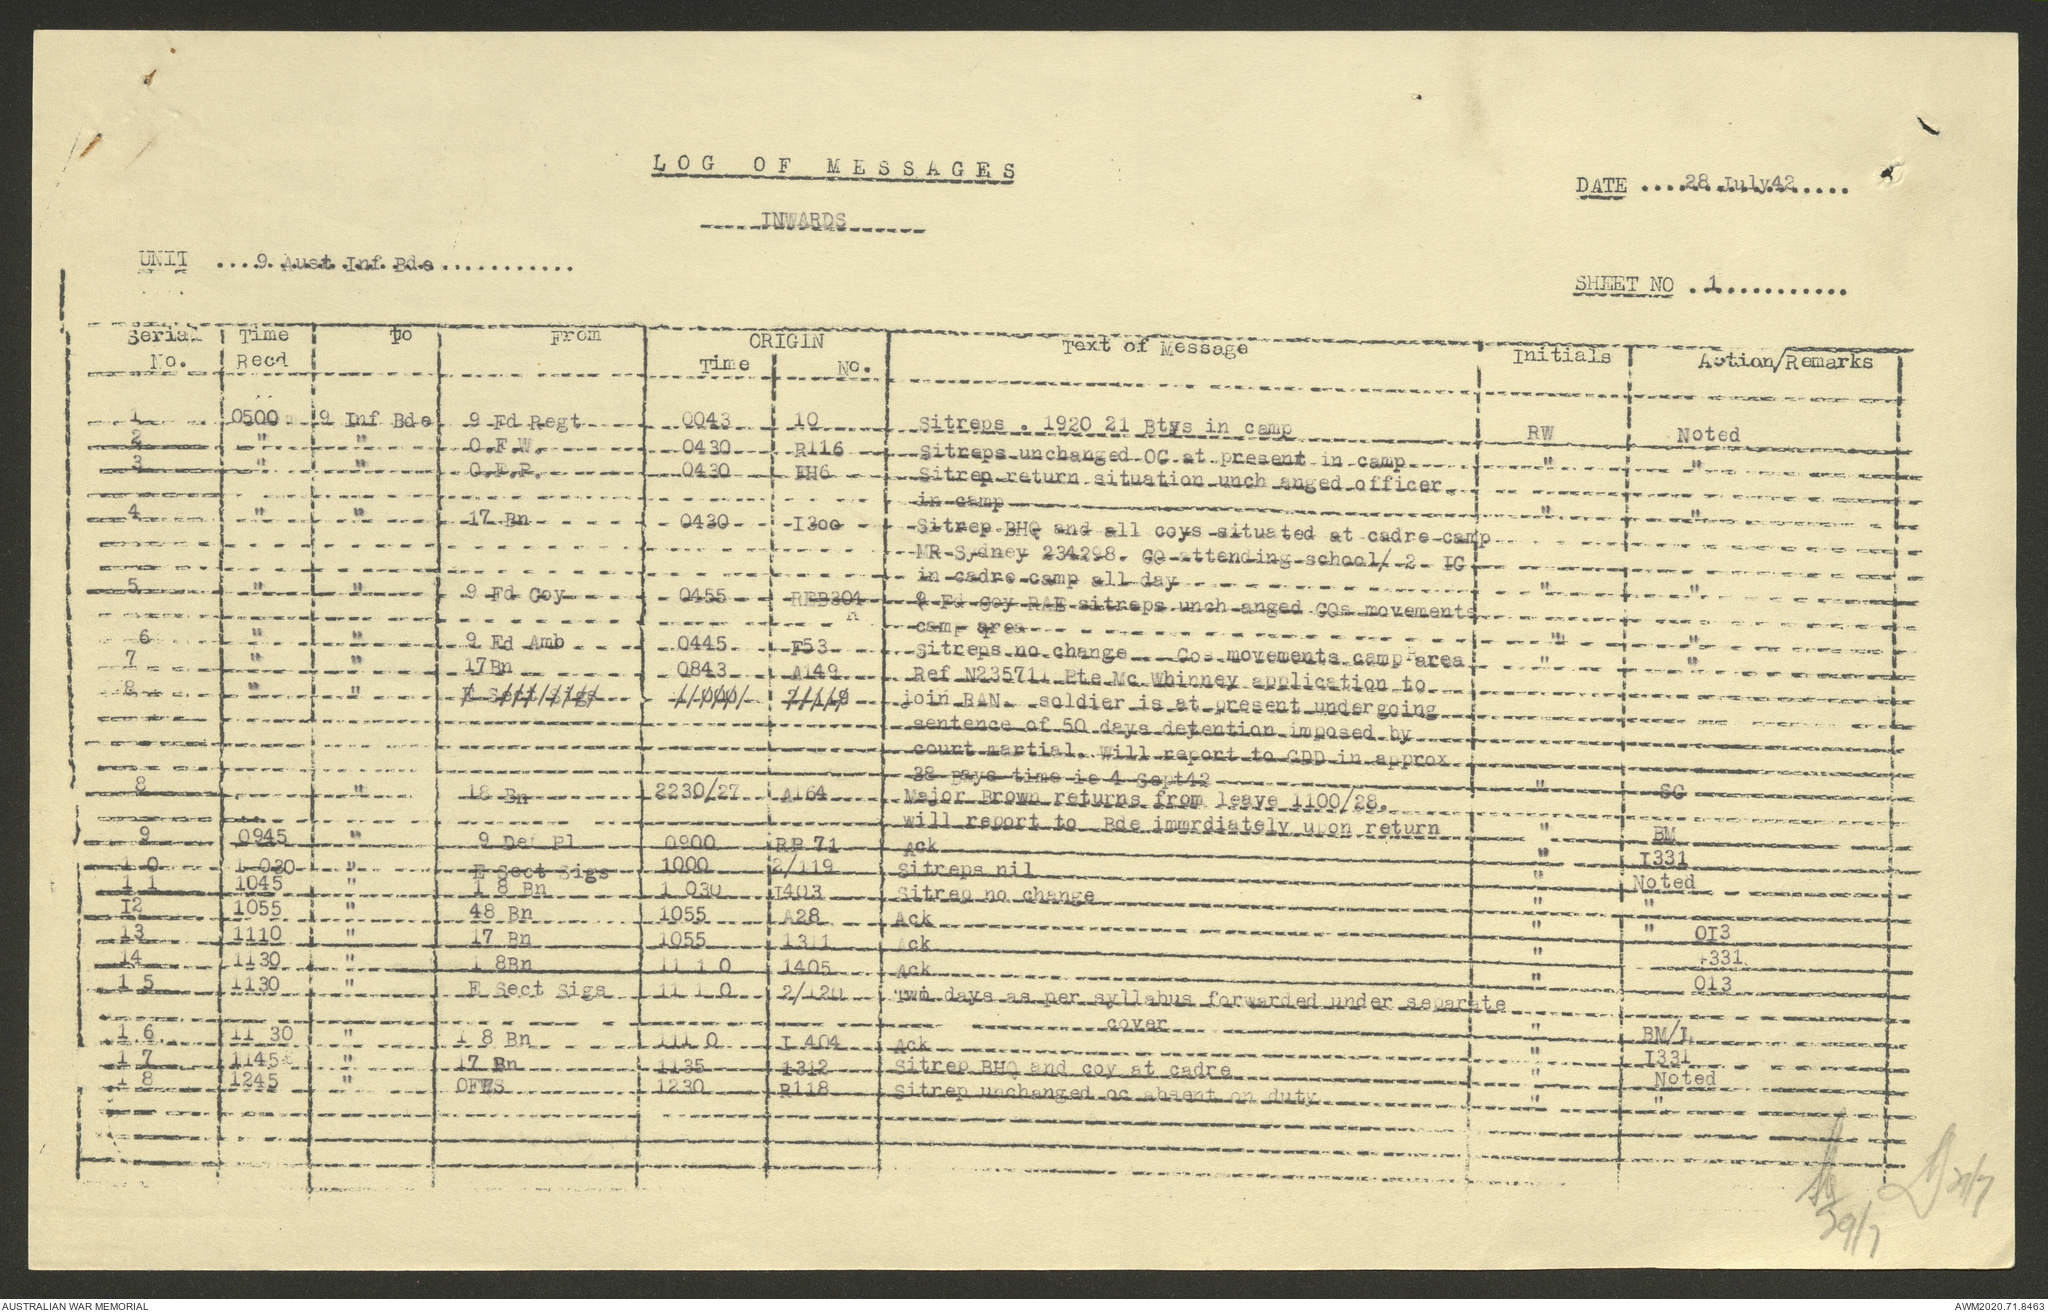 LOG OF MESSAGES
DATE ....28 July42.....
INWARDS
UNIT ....9 Aust Inf Bde............
SHEET NO .1...........
Serial No. Time Recd To From ORIGIN Time No. Text of Message Initials Action/Remarks
1 0500 9 Inf Bde 9 Fd Regt 0043 10 Sitreps . 1920 21 Btys in camp RW Noted
2 " " O.F.W. 0430 R116 Sitreps unchanged OC at present in camp " "
3 " " O.F.P. 0430 HH6 Sitrep return situation unch anged officer
in camp " "
4 " " 17 Bn 0430 I300 Sitrep BHQ and all coys situated at cadre camp
MR Sydney 234298. CO attending school/ 2 IC
in cadre camp all day " "
5 " " 9 Fd Coy 0455 REB304 A 9 Fd Coy RAE sitreps unch anged COs movements
camp area " "
6 " " 9 Fd Amb 0445 F53 Sitreps no change Cos movements camp area " "
7 " " 17Bn 0843 A149 Ref N235711 Pte Mc Whinney application to
8 " " E Sect Sigs 1000 2/119 join RAN. soldier is at present undergoing
sentence of 50 days detention imposed by
court martial. Will report to GDD in approx
38 pays time ie 4 Sept42 " SC
8 " 18 Bn 2230/27 A164 Major Brown returns from leave 1100/28.
will report to Bde immrdiately upon return " BM
9 0945 " 9 Def Pl 0900 RP 71 Ack " I331
1 0 1 030 " E Sect Sigs 1000 2/119 Sitreps nil " Noted
1 1 1045 " 1 8 Bn 1 030 I403 Sitrep no change " "
12 1055 " 48 Bn 1055 A28 Ack " " OI3
13 1110 " 17 Bn 1055 1311 Ack " 331
14 1130 " 1 8Bn 11 1 0 1405 Ack " 013
1 5 1130 E Sect Sigs 11 1 0 2/120 Two days as per syllabus forwarded under separate
cover " BM/L
1 6 11 30 " 1 8 Bn 111 0 I 404 Ack " I331
1 7 1145 " 17 Bn 1135 1312 Sitrep BHQ and coy at cadre " Noted
1 8 1245 " OFWS 1230 R118 Sitrep unchanged oc absent on duty " "
29/7
AUSTRALIAN WAR MEMORIAL
AWM2020.71.8463